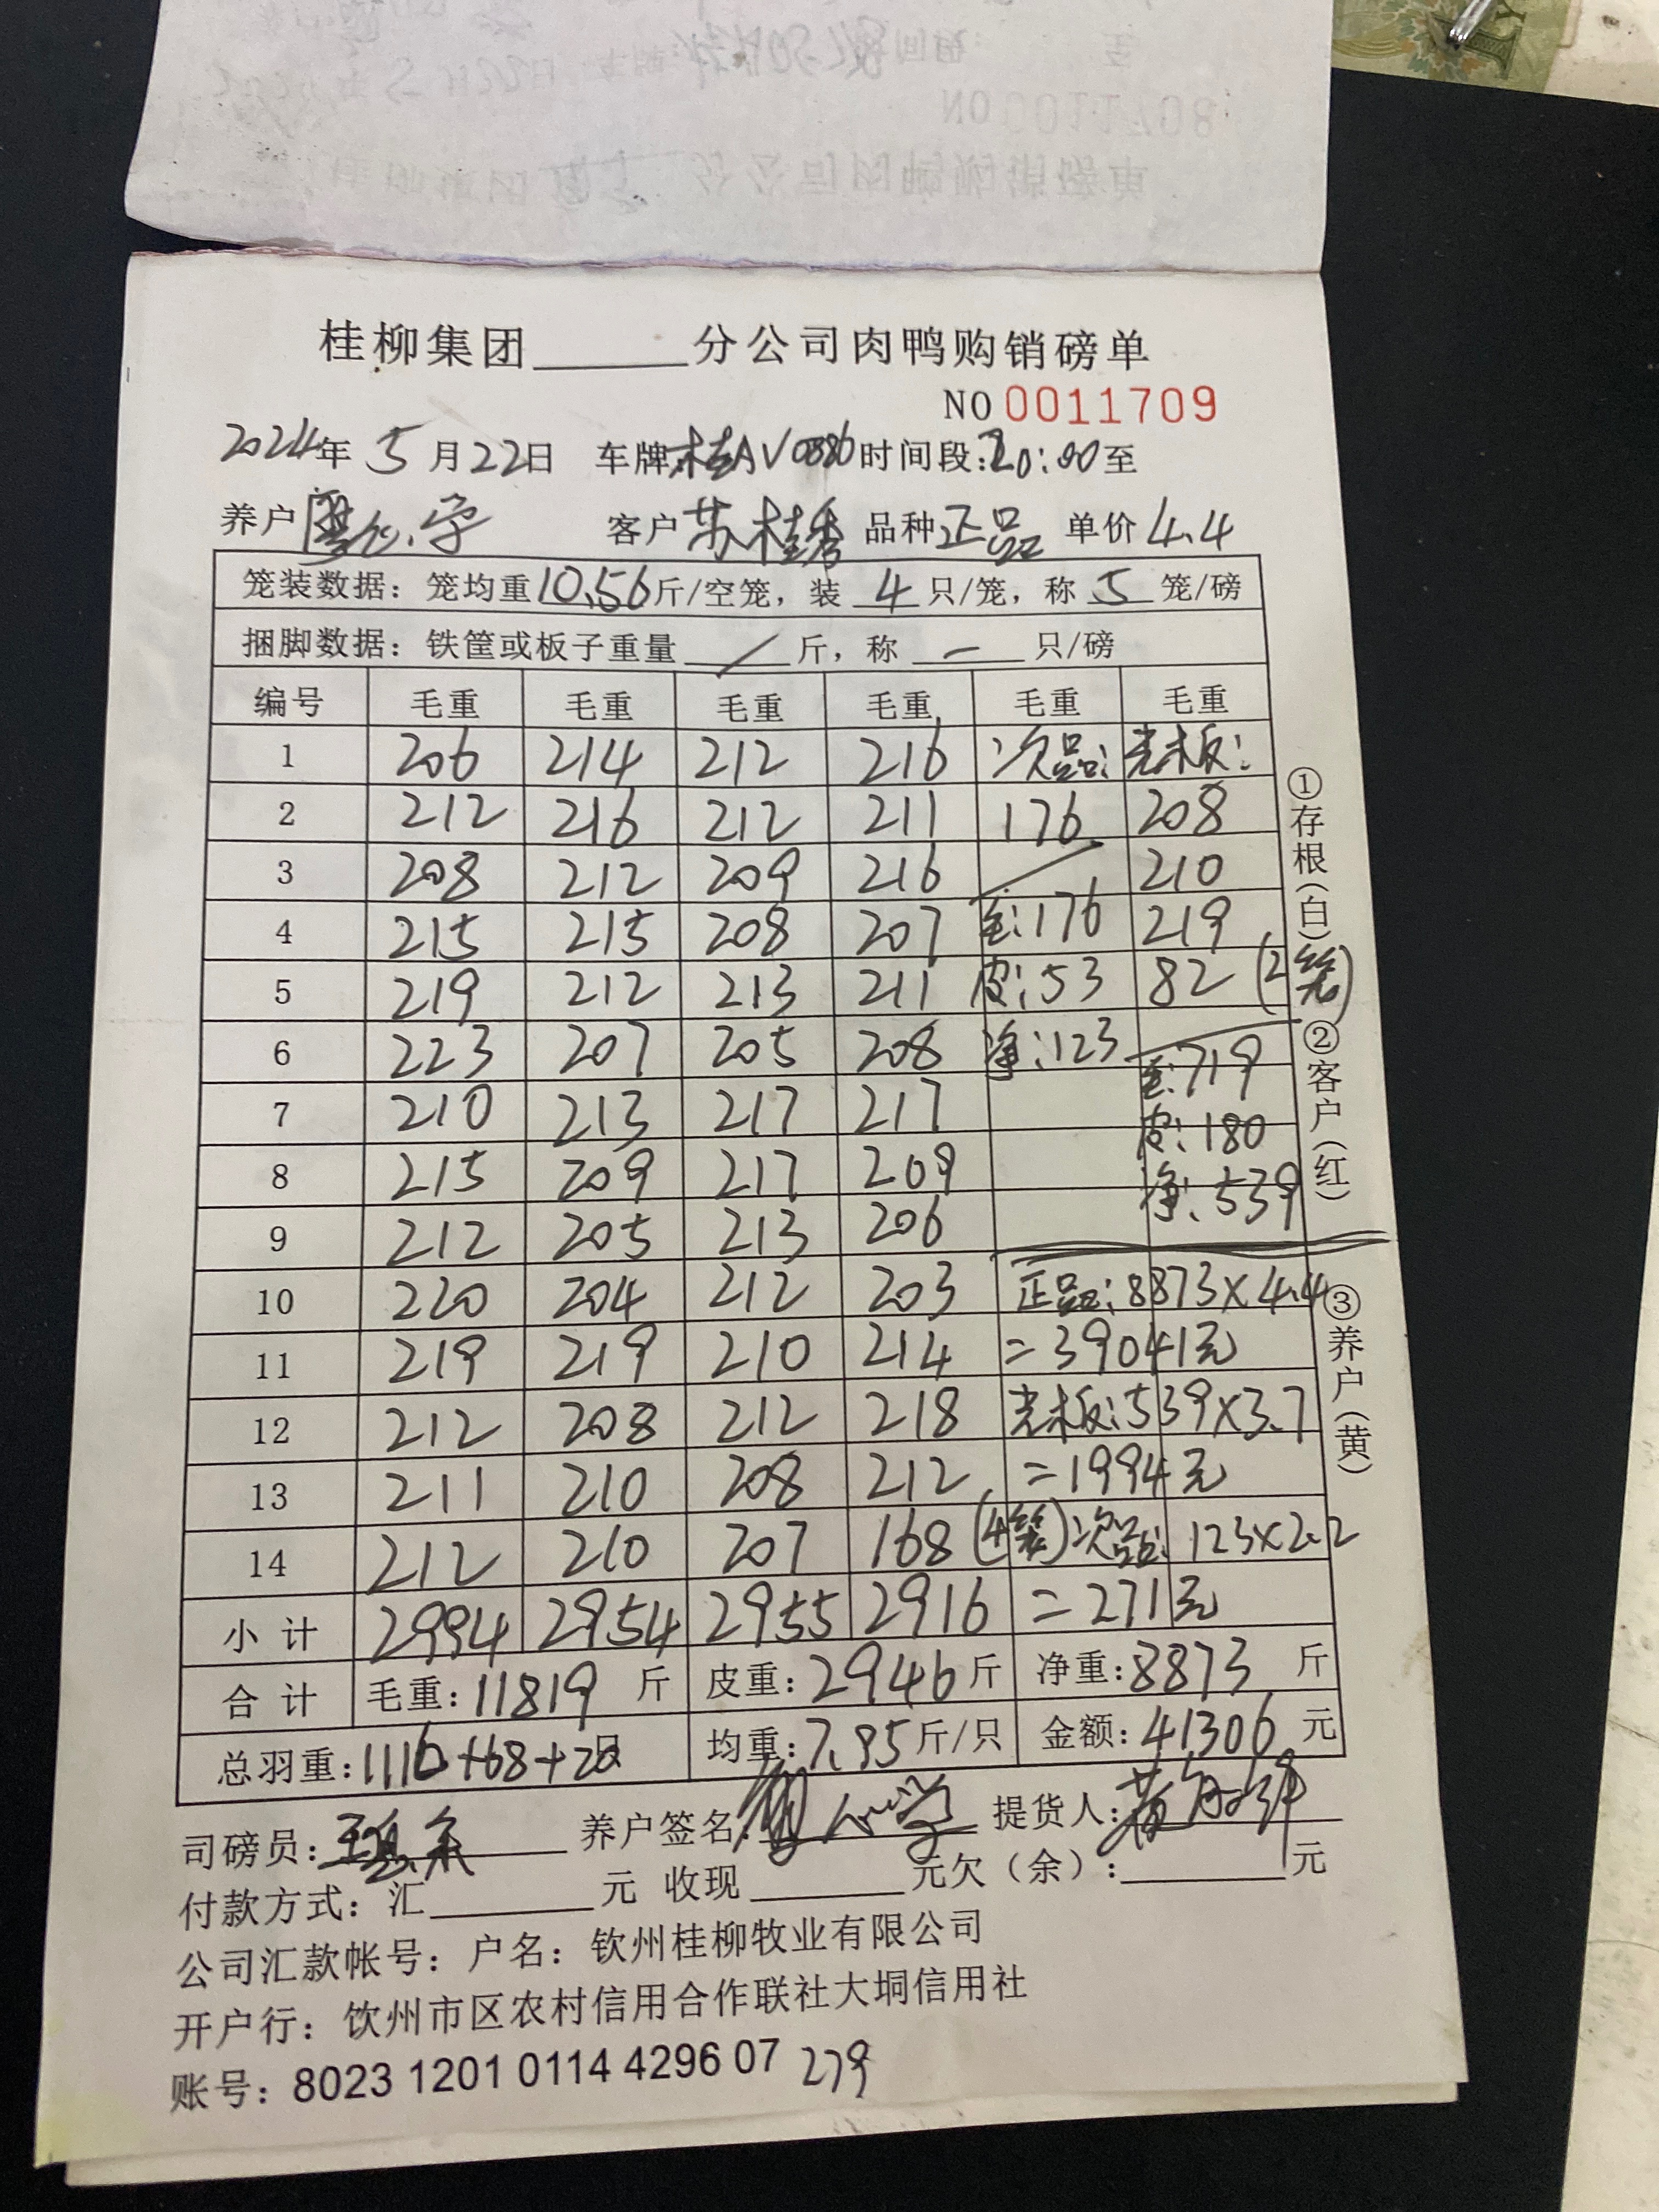 桂柳集团______分公司肉鸭购销磅单
NO 0011709
2024年 5月22日 车牌:桂AV0886 时间段:20:00至
养户 客户 苏桂秀 品种 正品 单价 4.4
笼装数据：笼均重10.56斤/空笼，装 4 只/笼，称 5 笼/磅
捆脚数据：铁筐或板子重量 / 斤，称 — 只/磅
编号 毛重 毛重 毛重 毛重 毛重 毛重
1 206 214 212 216 次品: 光板:
2 212 216 212 211 176 208
3 208 212 209 216 210
4 215 215 208 207 毛:176 219
5 219 212 213 211 皮:53 82 (2笼)
6 223 207 205 208 净:123 毛:719
7 210 213 217 217 皮:180
8 215 209 217 209 净:539
9 212 205 213 206
10 220 204 212 203 正品:8873×4.4
11 219 219 210 214 =39041元
12 212 208 212 218 光板:539×3.7
13 211 210 208 212 =1994元
14 212 210 207 168 (4笼) 次品: 123×2.2
小计 2994 2954 2955 2916 =271元
合计 毛重:11819 斤 皮重:2946斤 净重:8873 斤
总羽重:1116+68+20 均重:7.95斤/只 金额:41306 元
司磅员: 养户签名: 提货人:
付款方式：汇______元 收现______元欠（余）:______元
公司汇款帐号：户名：钦州桂柳牧业有限公司
开户行：钦州市区农村信用合作联社大垌信用社
账号：8023 1201 0114 4296 07 279
①存根(白)
②客户(红)
③养户(黄)